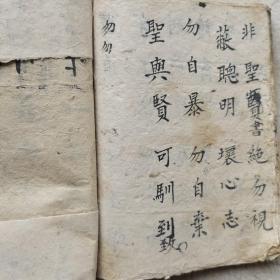 非聖賢書絶勿視
蔽聰明壞心志
勿自暴勿自棄
聖與賢可馴到致
勿勿